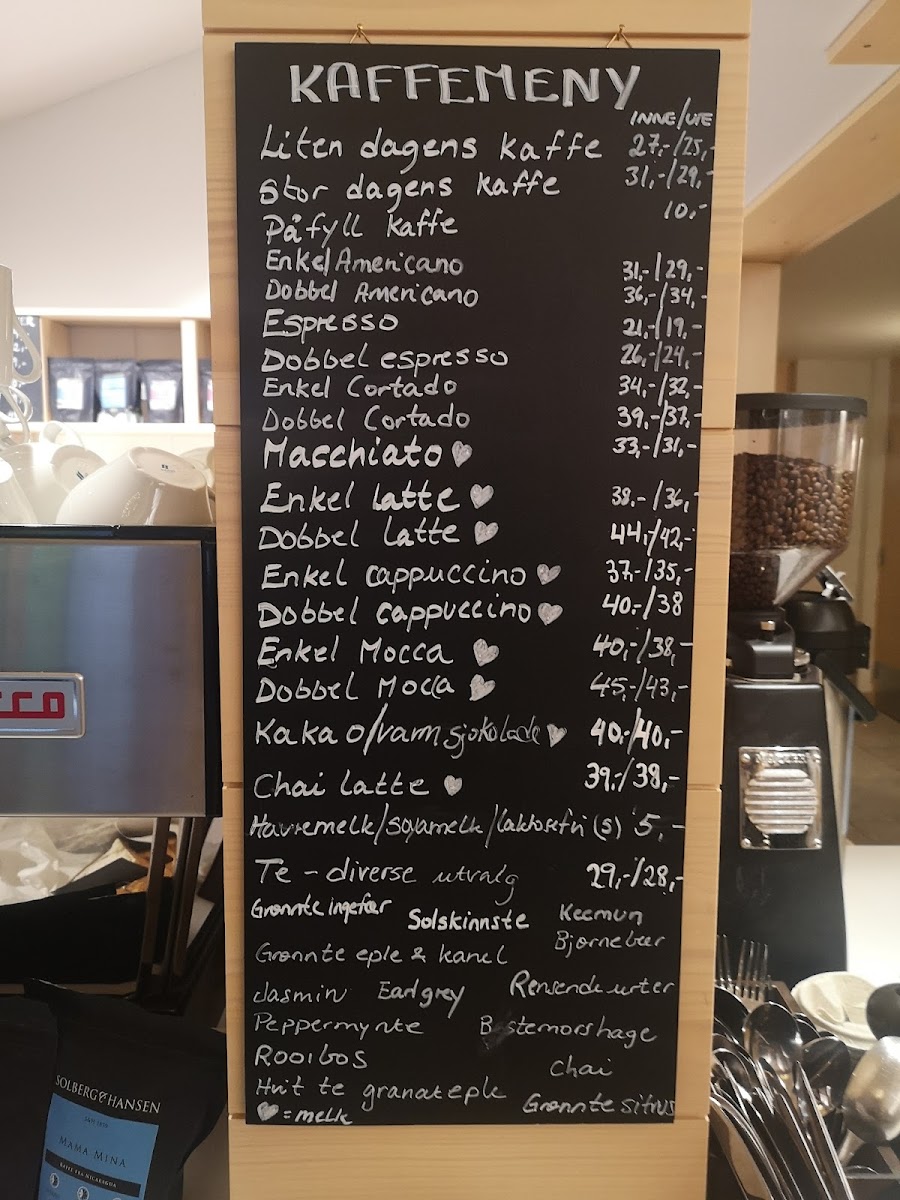 KAFFEMENY
INNE/UTE
Liten dagens kaffe 27,-/25,-
Stor dagens kaffe 31,-/29,-
Påfyll kaffe 10,-
Enkel Americano 31,-/29,-
Dobbel Americano 36,-/34,-
Espresso 21,-/19,-
Dobbel espresso 26,-/24,-
Enkel Cortado 34,-/32,-
Dobbel Cortado 39,-/37,-
Macchiato ♥ 33,-/31,-
Enkel latte ♥ 38,-/36,-
Dobbel latte ♥ 44,-/42,-
Enkel cappuccino ♥ 37,-/35,-
Dobbel cappuccino ♥ 40,-/38
Enkel Mocca ♥ 40,-/38,-
Dobbel Mocca ♥ 45,-/43,-
Kakao/varm sjokolade ♥ 40,-/40,-
Chai latte ♥ 39,-/38,-
Havremelk/soyamelk/laktosefri (s) 5,-
Te - diverse utvalg 29,-/28,-
Grønnte ingefær Solskinnste Keemun
Grønnte eple & kanel Bjørnebær
Jasmin Earl grey Rensende urter
Peppermynte Bestemorshage
Rooibos Chai
Hvit te granateple Grønnte sitrus
♥ = melk
SOLBERG & HANSEN
MAMA MINA
KAFFE FRA NICARAGUA